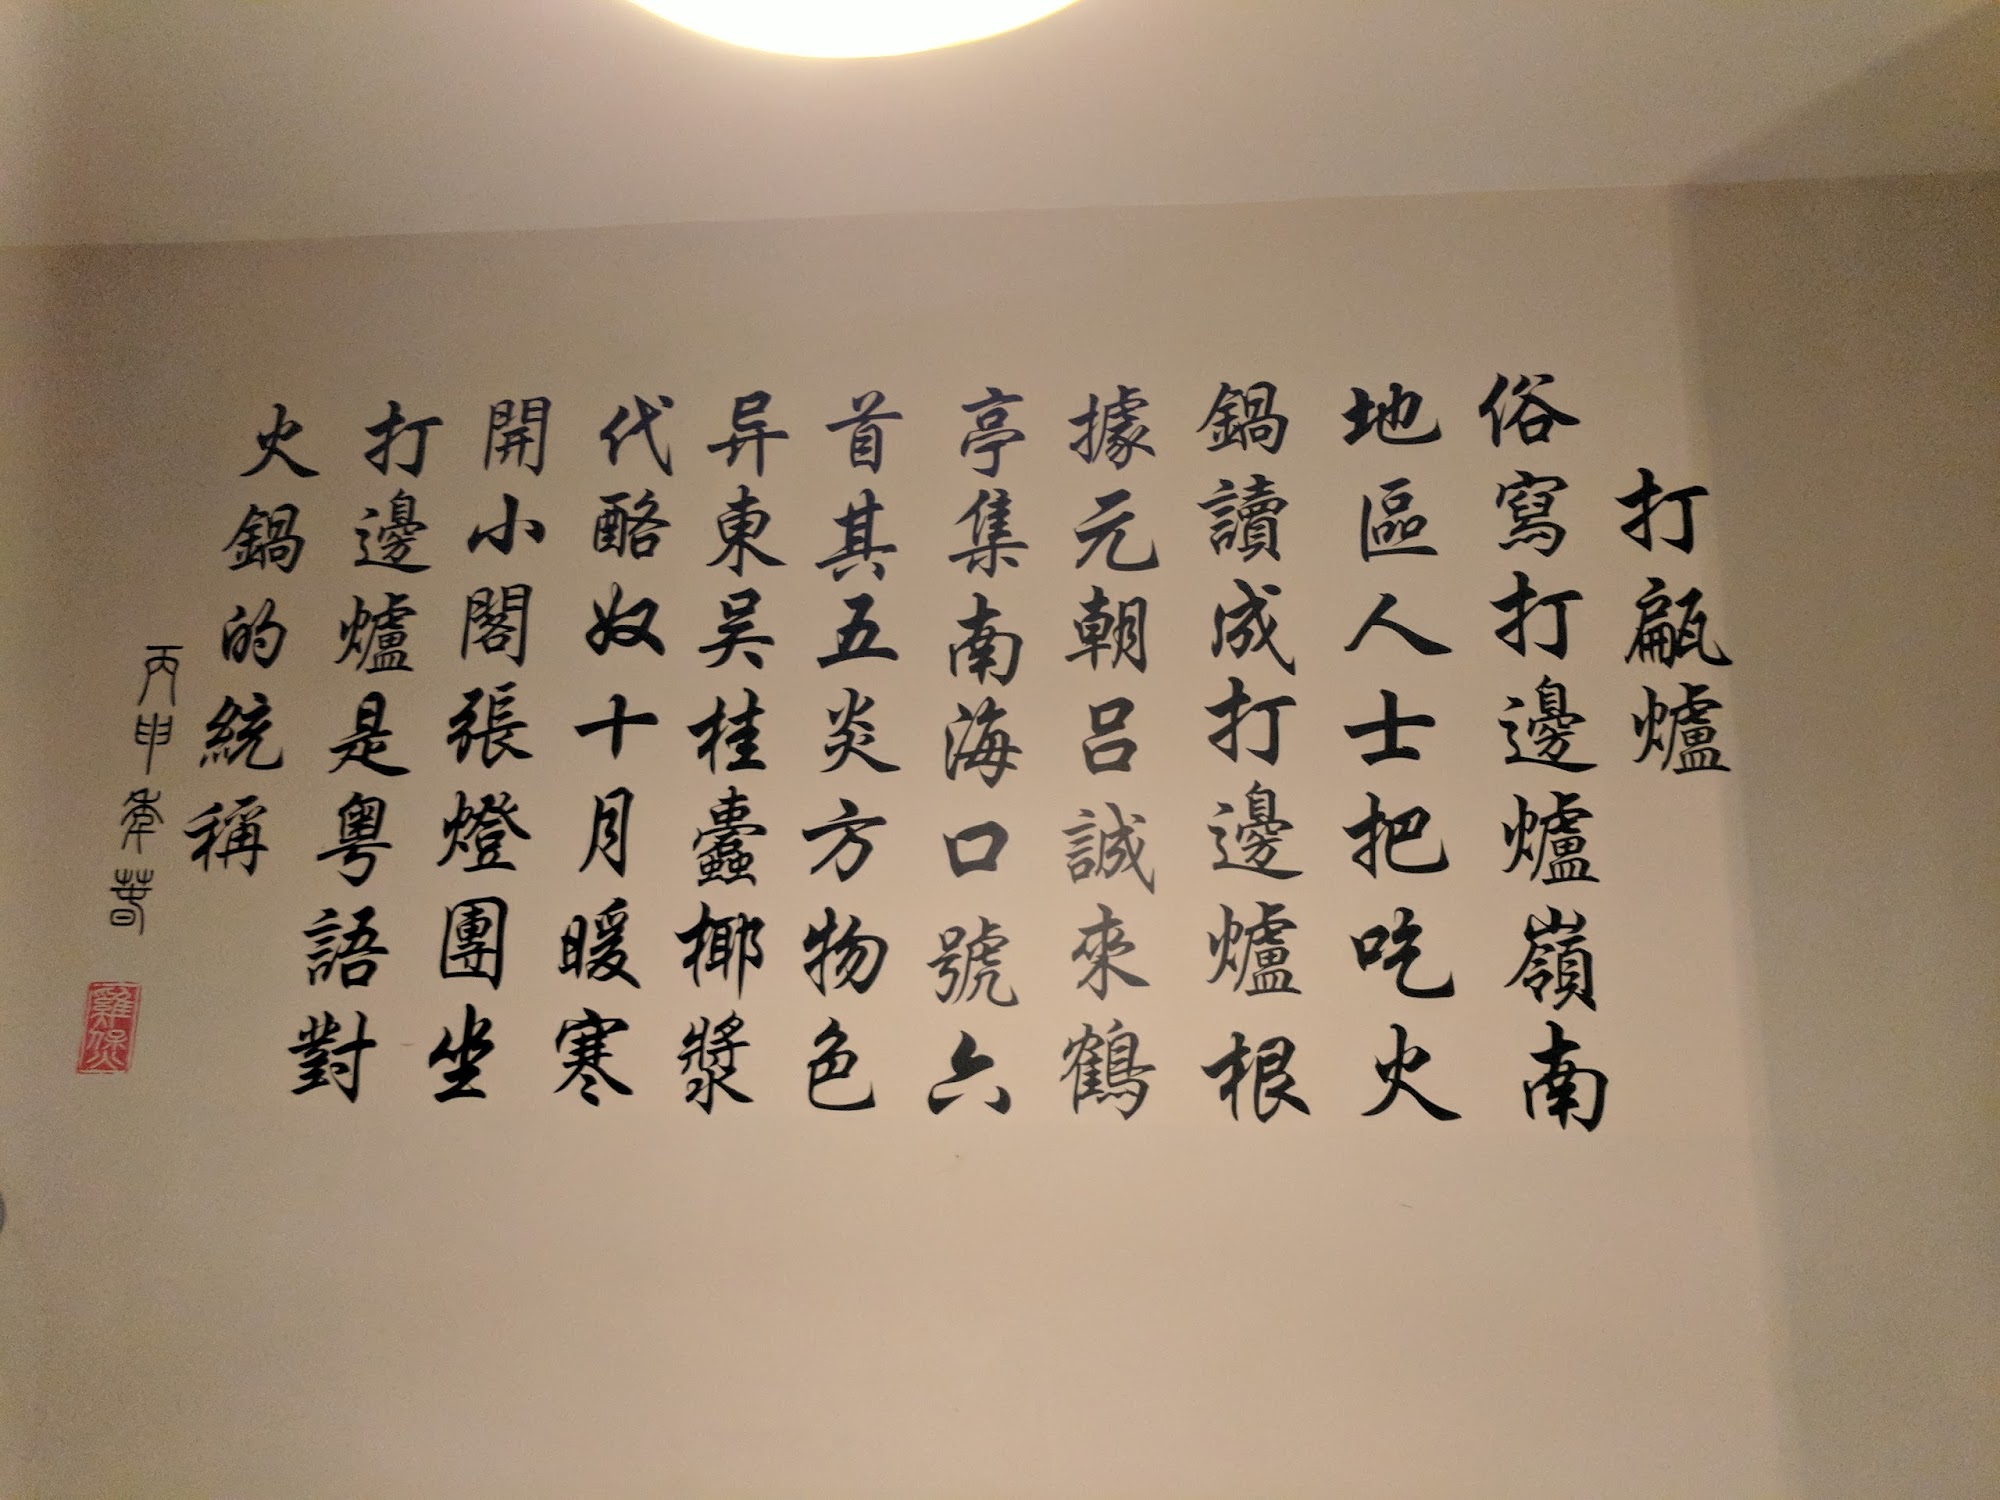 打甂爐
俗寫打邊爐嶺南
地區人士把吃火
鍋讀成打邊爐根
據元朝呂誠來鶴
亭集南海口號六
首其五炎方物色
异東吴桂蠹椰漿
代酪奴十月暖寒
開小閣張燈團坐
打邊爐是粤語對
火鍋的統稱
丙申年春